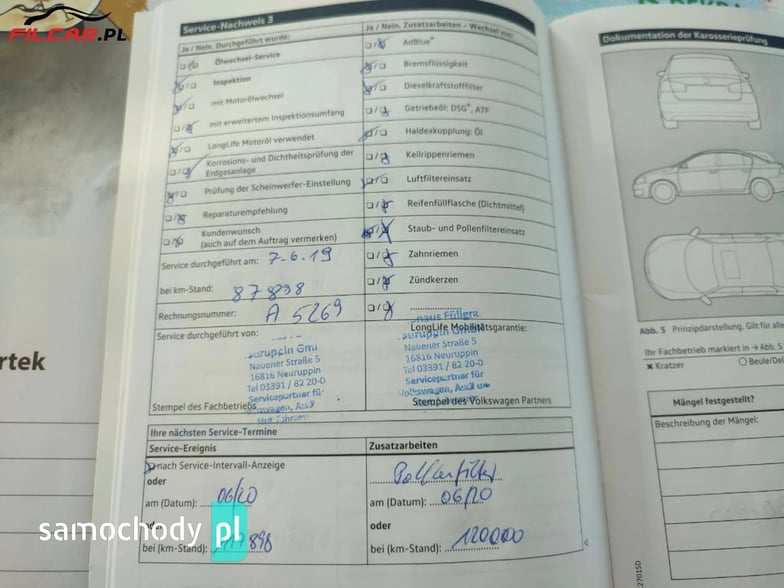 FILCAR.PL
Service-Nachweis 3
Ja / Nein. Durchgeführt wurde:
Ölwechsel-Service
Inspektion
mit Motorölwechsel
mit erweitertem Inspektionsumfang
LongLife Motoröl verwendet
Korrosions- und Dichtheitsprüfung der
Erdgasanlage
Prüfung der Scheinwerfer-Einstellung
Reparaturempfehlung
Kundenwunsch
(auch auf dem Auftrag vermerken)
Service durchgeführt am: 7-6.19
bei km-Stand: 87838
Rechnungsnummer: A 5269
Service durchgeführt von:
Nauener Straße 5
16816 Neuruppin
Tel 03391 / 82 20-0
Servicepartner für
Stempel des Fachbetriebs
Ja / Nein. Zusatzarbeiten – Wechsel von:
AdBlue®
Bremsflüssigkeit
Dieselkraftstofffilter
Getriebeöl: DSG®, ATF
Haldexkupplung: Öl
Keilrippenriemen
Luftfiltereinsatz
Reifenfüllflasche (Dichtmittel)
Staub- und Pollenfiltereinsatz
Zahnriemen
Zündkerzen
LongLife Mobilitätsgarantie:
Nauener Straße 5
16816 Neuruppin
Tel 03391 / 82 20-0
Servicepartner für
Stempel des Volkswagen Partners
Ihre nächsten Service-Termine
Service-Ereignis
nach Service-Intervall-Anzeige
oder
am (Datum): 06/20
bei (km-Stand): 898
Zusatzarbeiten
Pollenfilter
am (Datum): 06/20
oder
bei (km-Stand): 120000
Dokumentation der Karosserieprüfung
Abb. 5 Prinzipdarstellung. Gilt für alle
Ihr Fachbetrieb markiert in → Abb. 5
Kratzer
Beule/Del
Mängel festgestellt?
Beschreibung der Mängel:
rtek
samochody pl